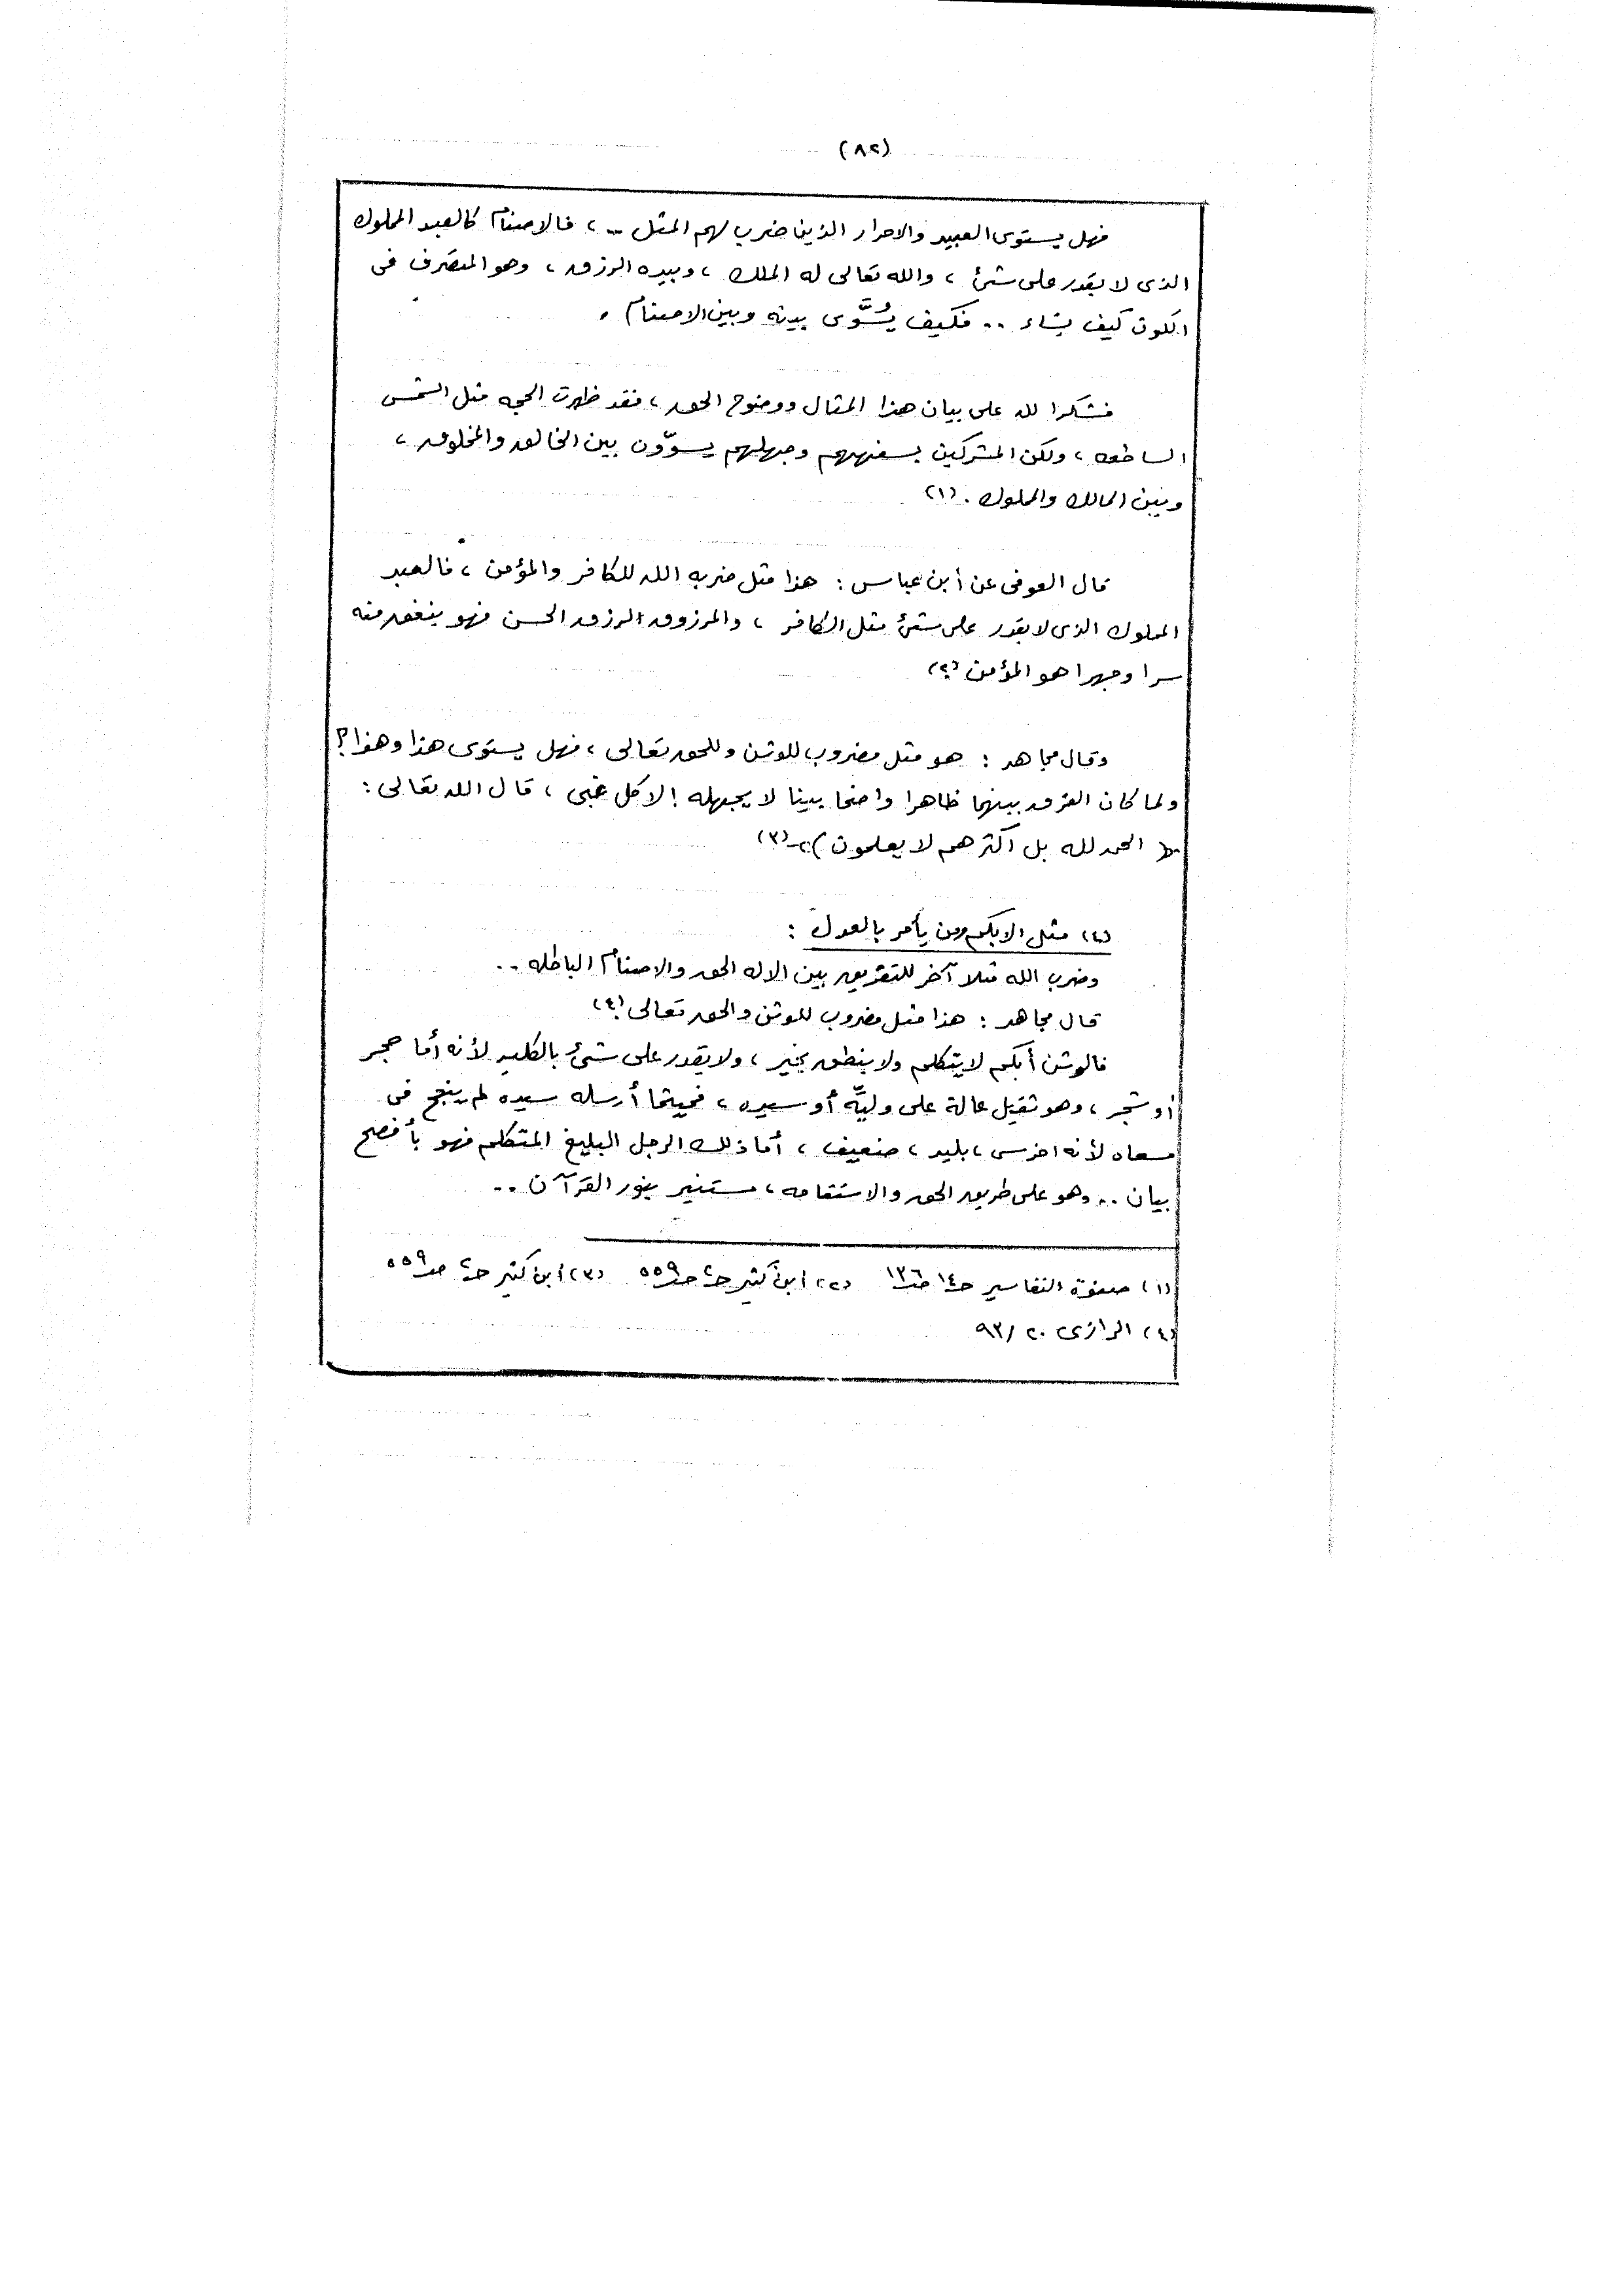 (٨٢)
فهل يستوى العبيد والاحرار الذين ضرب لهم المثل .. ، فالاصنام كالعبد المملوك
الذى لا يقدر على شئ ، والله تعالى له الملك ، وبيده الرزق ، وهو المتصرف فى
الكون كيف يشاء .. فكيف يُسَوَّى بينه وبين الاصنام .
فشكرا لله على بيان هذا المثال ووضوح الحق ، فقد ظهرت الحجه مثل الشمس
الساطعه ، ولكن المشركين بسفههم وجهلهم يسوّون بين الخالق والمخلوق ،
وبين المالك والمملوك . (١)
قال العوفى عن أبن عباس : هذا مثل ضربه الله للكافر والمؤمن ، فالعبد
المملوك الذى لا يقدر على شئ مثل الكافر ، والمرزوق الرزق الحسن فهو ينفق منه
سرا وجهرا هو المؤمن (٢)
وقال مجاهد : هو مثل مضروب للوثن وللحق تعالى ، فهل يستوى هذا وهذا ؟
ولما كان الفرق بينهما ظاهرا واضحا بينا لا يجهله إلا كل غبى ، قال الله تعالى :
( الحمد لله بل اكثرهم لا يعلمون ) . (٣)
(٤) مثل الابكم ومن يأمر بالعدل :
وضرب الله مثلا آخر للتفريق بين الاله الحق والاصنام الباطله ..
قال مجاهد : هذا مثل مضروب للوثن والحق تعالى (٤)
فالوثن أبكم لا يتكلم ولا ينطق بخير ، ولا يقدر على شئ بالكليه لأنه أما حجر
أو شجر ، وهو ثقيل عالة على وليَّه أو سيده ، فحيثما أرسله سيده لم ينجح فى
مسعاه لأنه اخرس ، بليد ، ضعيف ، أما ذلك الرجل البليغ المتكلم فهو بأفصح
بيان .. وهو على طريق الحق والاستقامه ، مستنير بنور القرآن ..
(١) صفوة التفاسير حـ١٤ صـ١٣٦ (٢) ابن كثير حـ٢ صـ٥٥٩ (٣) أبن كثير حـ٢ صـ٥٥٩
(٤) الرازى ٢٠ /٩٣